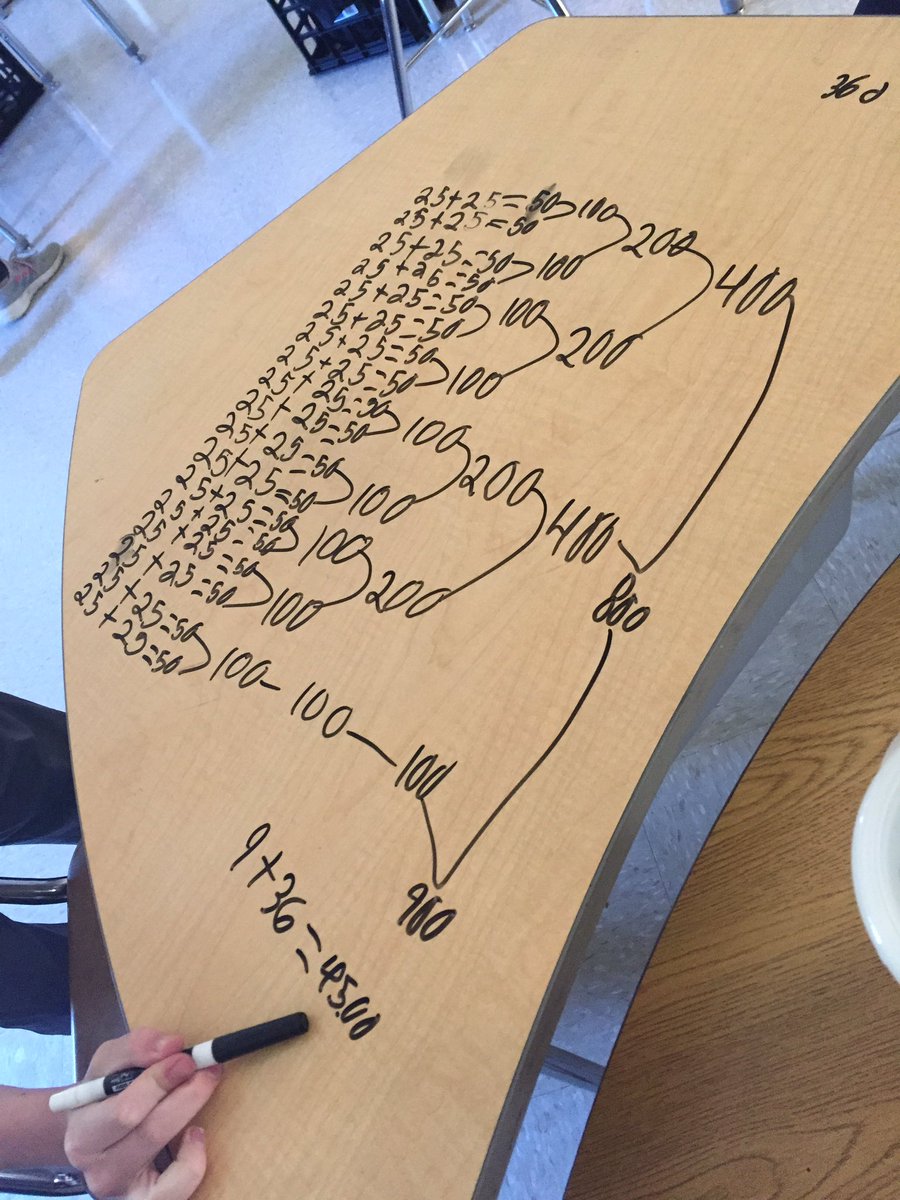 36d
25+25=50 100 200 400
25+25=50
25+25=50 100
25+25=50
25+25=50 100 200
25+25=50
25+25=50 100
25+25=50
25+25=50 100 200 400
25+25=50
25+25=50 100
25+25=50
25+25=50 100 200
25+25=50
25+25=50 100
25+25=50
25+25=50 100 - 100 - 100
25+25=50
800
900
9+36=45.00